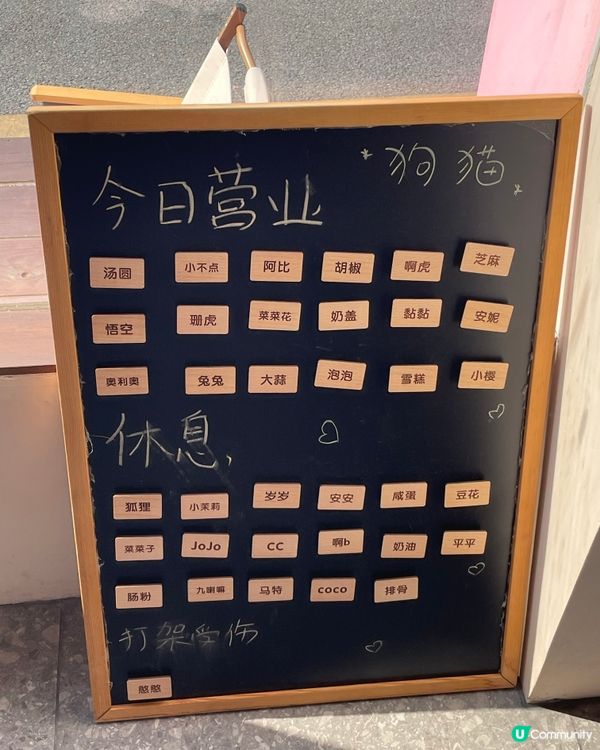 *狗 猫*
今日营业
汤圆 小不点 阿比 胡椒 啊虎 芝麻
悟空 珊虎 菜菜花 奶盖 黏黏 安妮
奥利奥 兔兔 大蒜 泡泡 雪糕 小樱
休息,
狐狸 小茉莉 岁岁 安安 咸蛋 豆花
菜菜子 JoJo CC 啊b 奶油 平平
肠粉 九喇嘛 马特 coco 排骨
打架受伤
憨憨
U Community